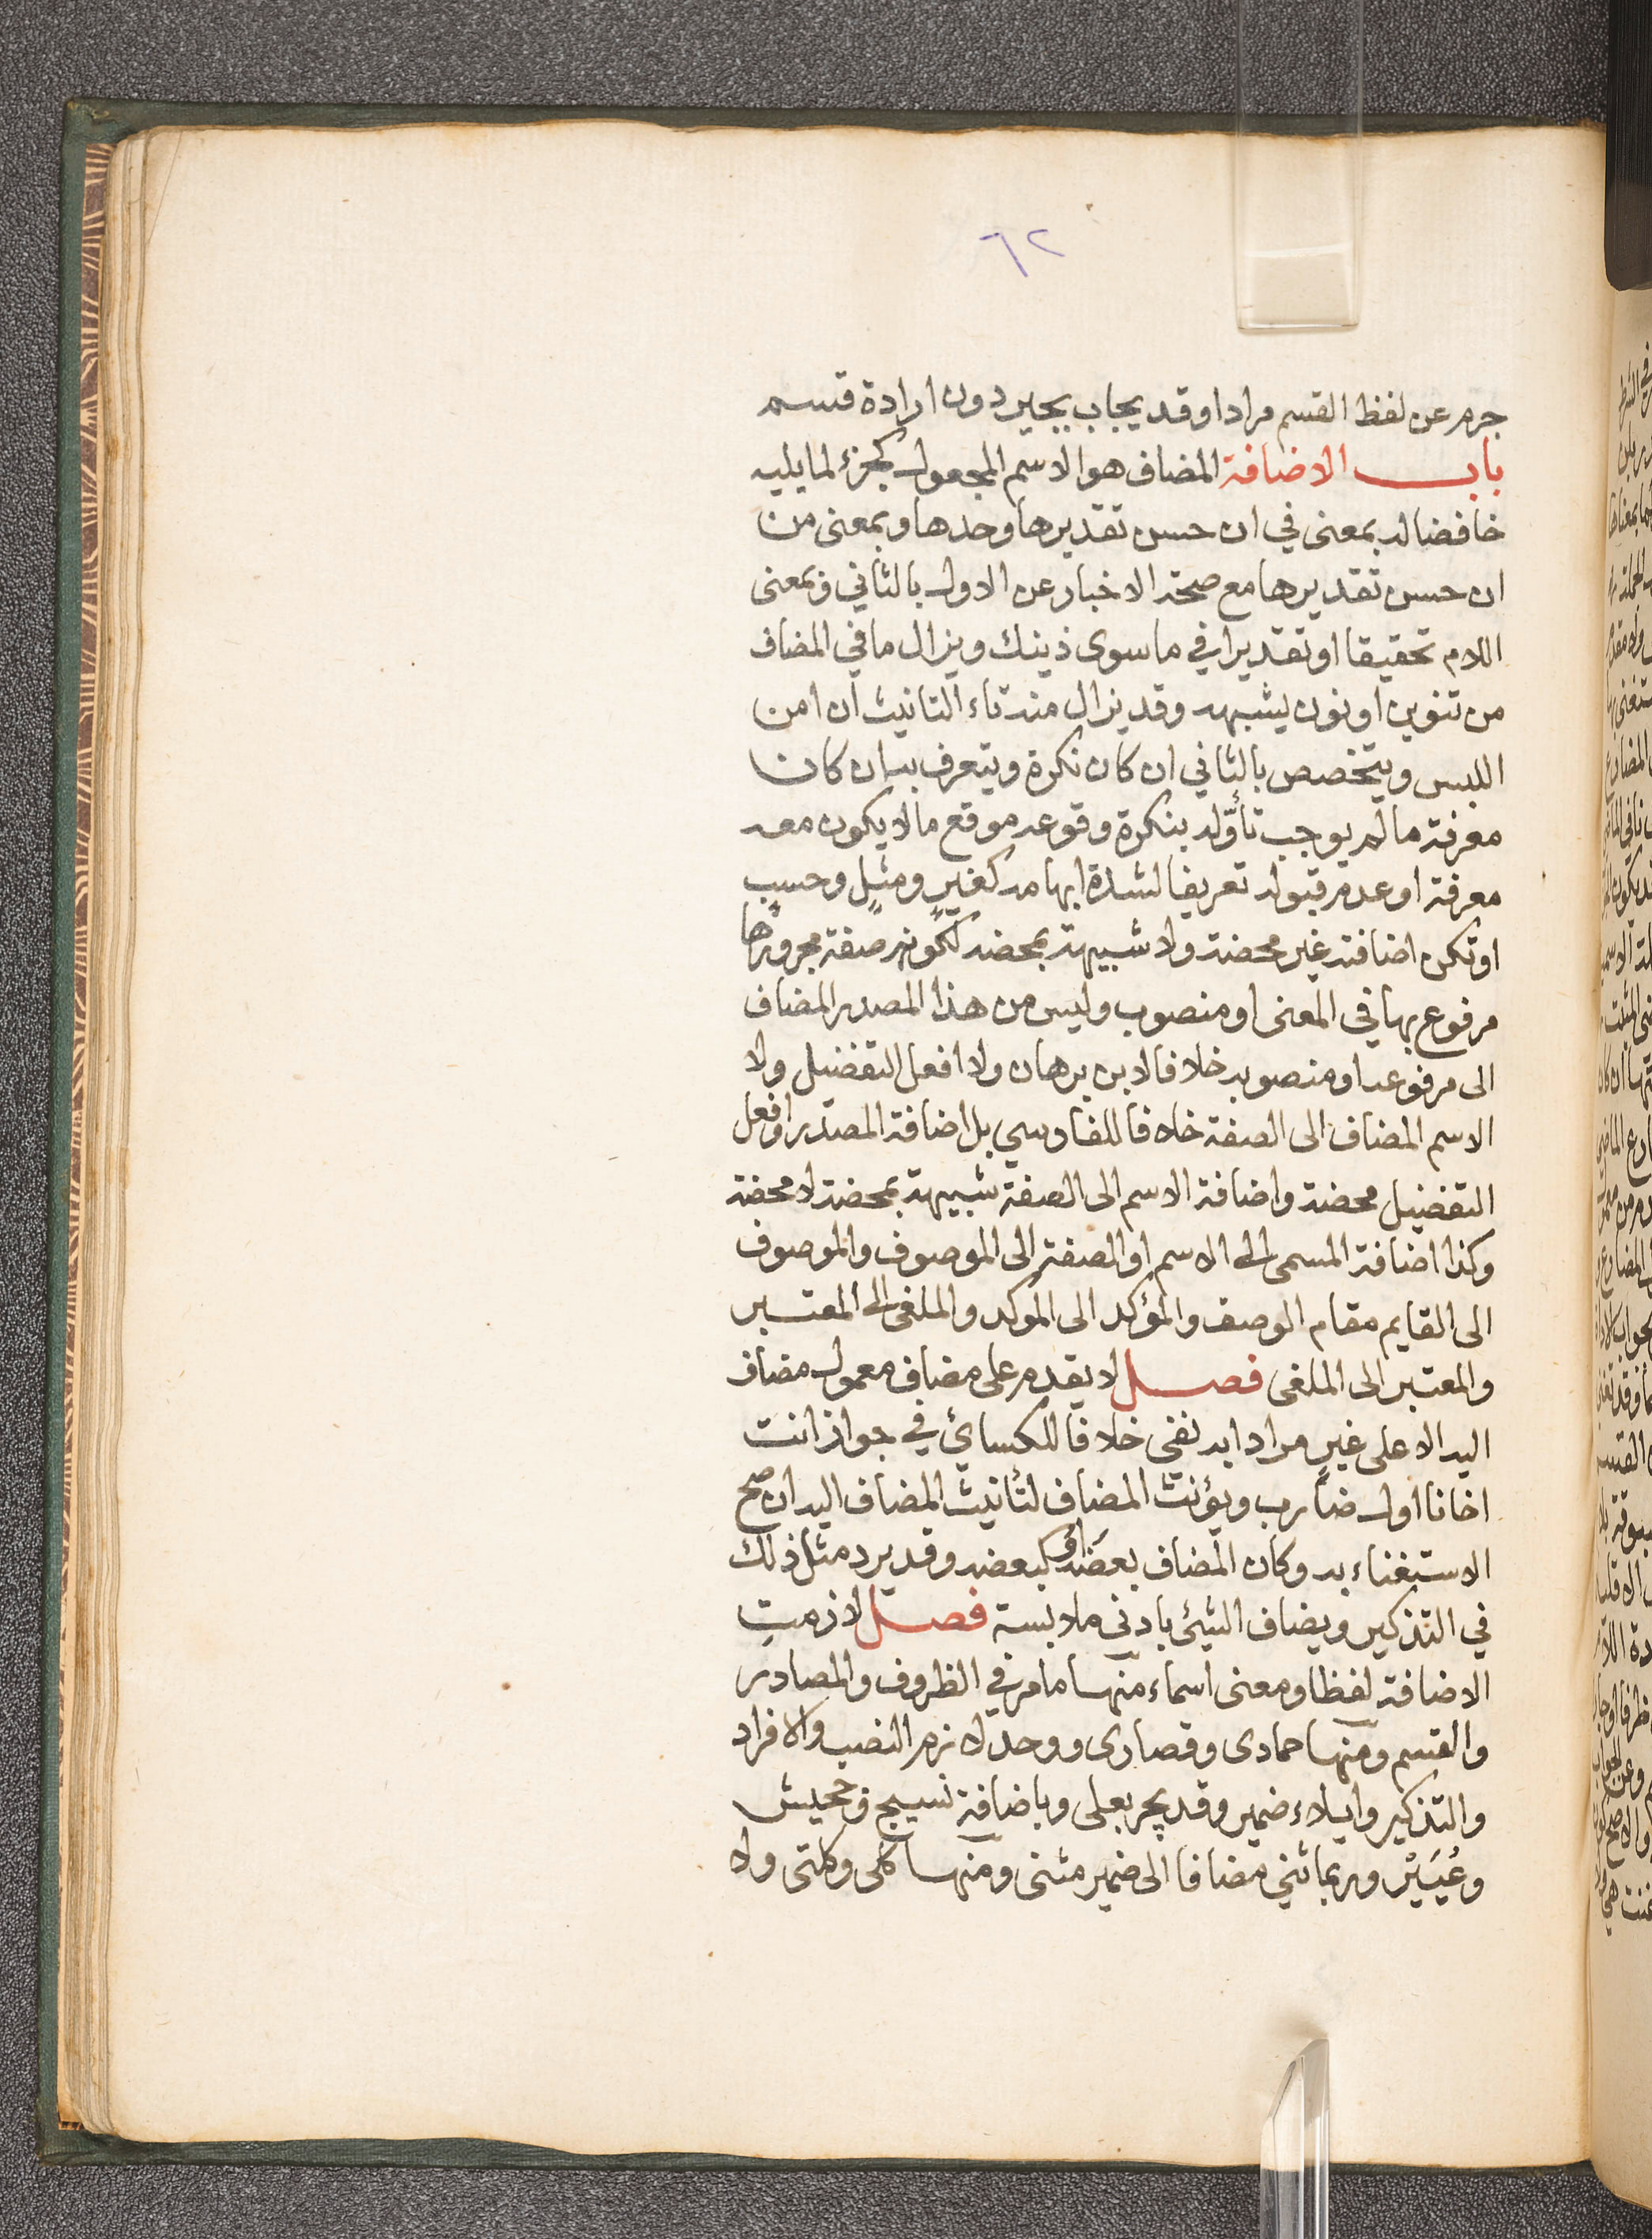 ٦٢
جرم عن لفظ القسم مرادا وقد يجاب بجير دون ارادة قسم
باب الاضافة المضاف هو الاسم المجعول كجزء لما يليه
خافضا له بمعنى في ان حسن تقديرها وحدها وبمعنى من
ان حسن تقديرها مع صحة الاخبار عن الاول بالثاني وبمعنى
اللام تحقيقا او تقديرا في ما سوى ذينك ويزال ما في المضاف
من تنوين او نون يشبهه وقد يزال منه تاء التانيث ان امن
اللبس ويتخصص بالثاني ان كان نكرة ويتعرف به ان كان
معرفة ما لم يوجب تأوّله بنكرة وقوعه موقع ما لا يكون معه
معرفة او عدم قبوله تعريفا لشدة ابهامه كغير ومثل وحسب
او تكن اضافته غير محضة ولا شبيهة بمحضه لكونه صفة مجرورها
مرفوع بها في المعنى او منصوب وليس من هذا المصدر المضاف
الى مرفوعه او منصوبه خلافا لابن برهان ولا افعل التفضيل ولا
الاسم المضاف الى الصفة خلافا للفارسي بل اضافة المصدر وافعل
التفضيل محضة واضافة الاسم الى الصفة شبيهة بمحضة لا محضة
وكذا اضافة المسمى الى الاسم او الصفة الى الموصوف والموصوف
الى القايم مقام الوصف والمؤكد الى الموكد والملغى الى المعتبر
والمعتبر الى الملغى فصل لا يقدم على مضاف معمول مضاف
اليه الا على غير مرادا به نفي خلافا للكسائي في جواز انت
اخانا اول ضارب ويؤنث المضاف لتأنيث المضاف اليه ان صح
الاستغناء به وكان المضاف بعضه او كبعضه وقد يرد مثل ذلك
في التذكير ويضاف الشيئ بادنى ملابسة فصل لازمت
الاضافة لفظا ومعنى اسماء منها ما مر في الظروف والمصادر
والقسم ومنها حمادى وقصارى ووحد لازم النصب والافراد
والتذكير وايلاء ضمير وقد يجر بعلى وباضافة نسيج وجحيش
وعُيَيْر وربما ثني مضافا الى ضمير مثنى ومنها كلى وكلتى ولا